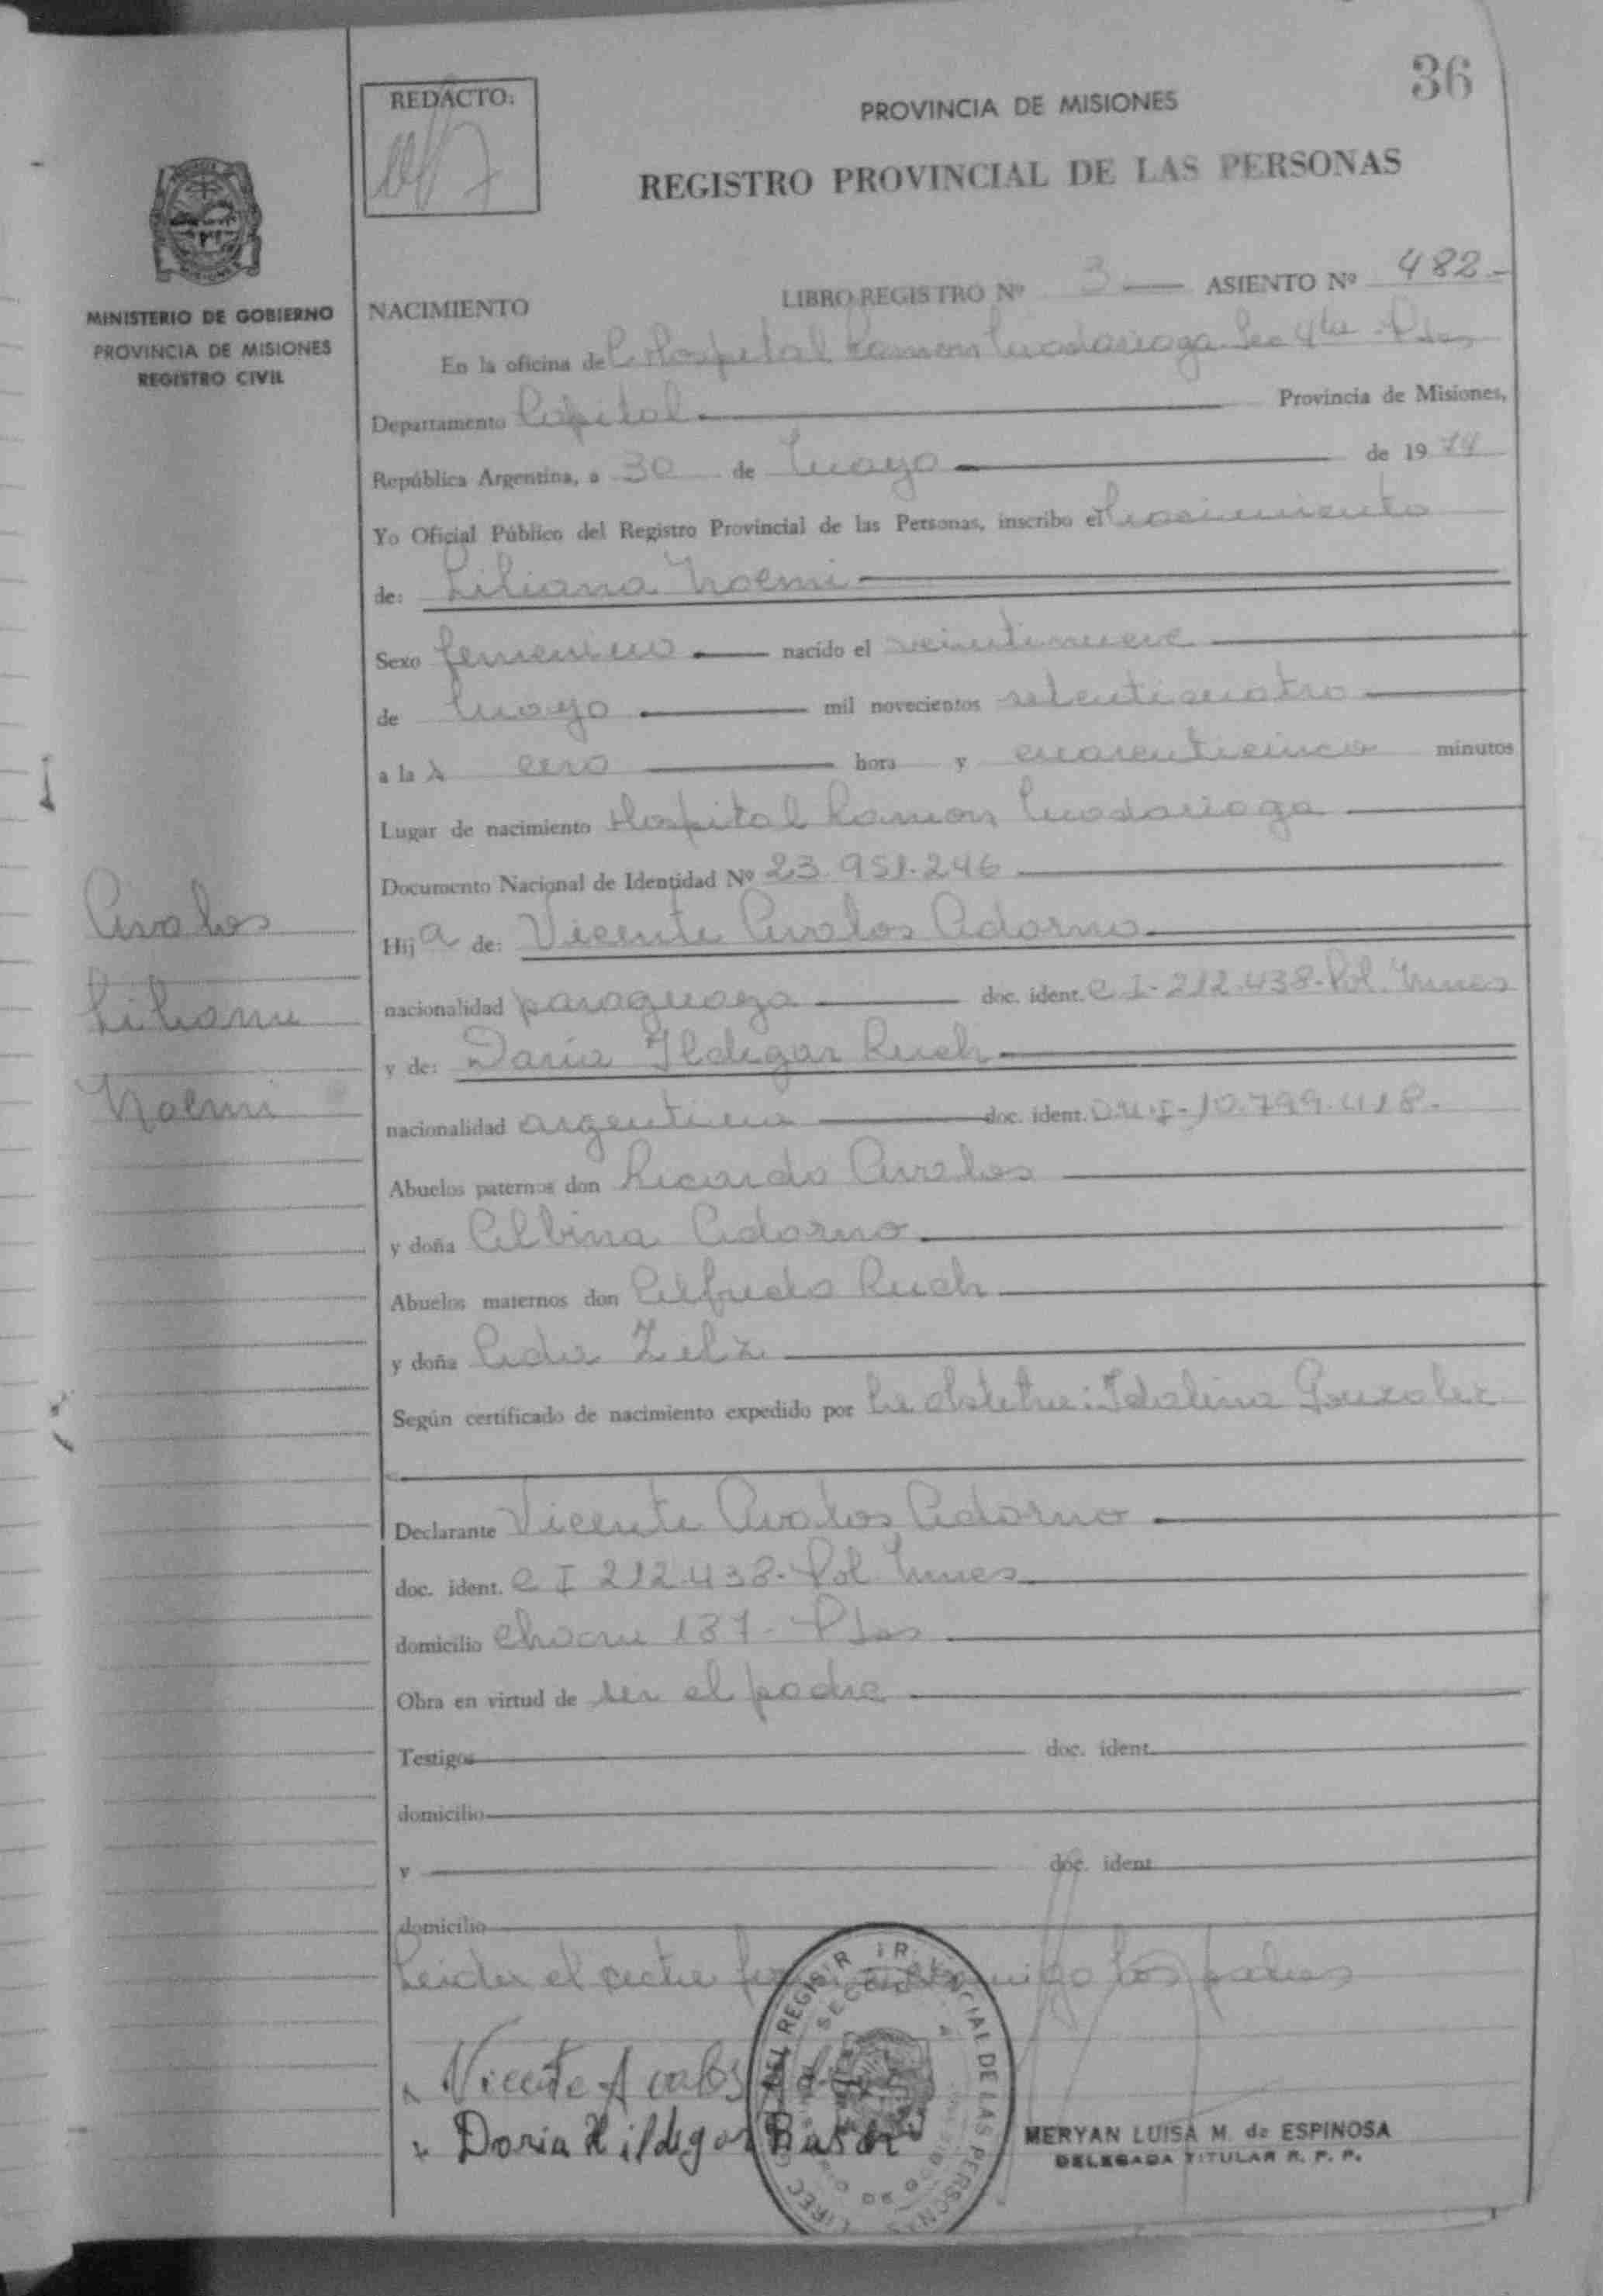 36
REDACTO:
PROVINCIA DE MISIONES
REGISTRO PROVINCIAL DE LAS PERSONAS
MINISTERIO DE GOBIERNO
PROVINCIA DE MISIONES
REGISTRO CIVIL
NACIMIENTO LIBRO REGISTRO Nº 3 ASIENTO Nº 482.-
En la oficina de Hospital Ramon Madariaga Sec 4ta - Pdas
Departamento Capital Provincia de Misiones,
República Argentina, a 30 de mayo de 1974
Yo Oficial Público del Registro Provincial de las Personas, inscribo el nacimiento
de: Liliana Noemi
Sexo femenino nacido el veintinueve
de mayo mil novecientos setenticuatro
a la s cero hora y cuarenticinco minutos
Lugar de nacimiento Hospital Ramon Madariaga
Documento Nacional de Identidad Nº 23.951.246
Avalos
Liliana
Noemi
Hija de: Vicente Avalos Adorno
nacionalidad paraguaya doc. ident. C I- 212.438- Pol. Mnes
y de: Daria Ildegar Ruch
nacionalidad argentina doc. ident. D.N.I- 10.799.418.
Abuelos paternos don Ricardo Avalos
y doña Albina Adorno
Abuelos maternos don Alfredo Ruch
y doña Aida
Según certificado de nacimiento expedido por La obstetra: Idalina Gonzalez
Declarante Vicente Avalos Adorno
doc. ident. C I 212.438- Pol. Mnes
domicilio 137 - Pdas
Obra en virtud de ser el padre
Testigos doc. ident.
domicilio
y doc. ident
domicilio
Leida el acta los padres
Vicente Avalos
Doria Hildegar
MERYAN LUISA M. de ESPINOSA
DELEGADA TITULAR R. P. P.